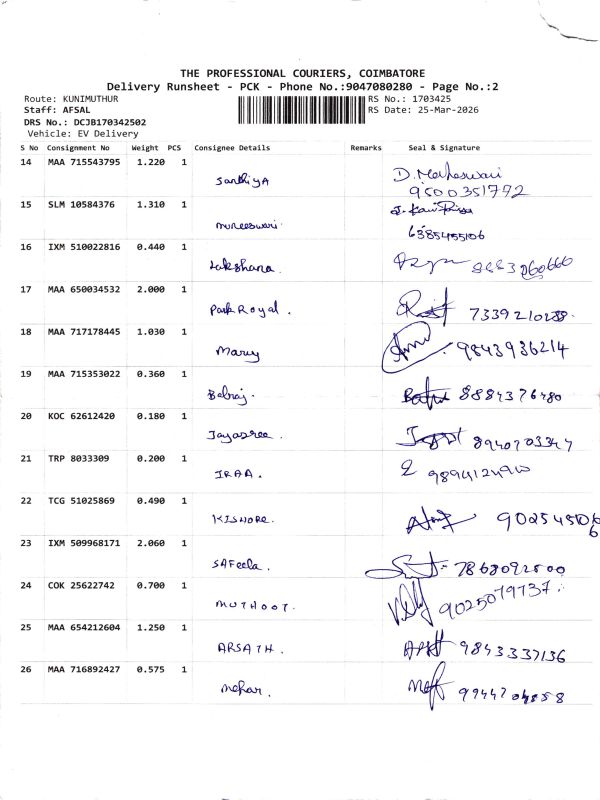 THE PROFESSIONAL COURIERS, COIMBATORE
Delivery Runsheet - PCK - Phone No.:9047080280 - Page No.:2
Route: KUNIMUTHUR RS No.: 1703425
Staff: AFSAL RS Date: 25-Mar-2026
DRS No.: DCJB170342502
Vehicle: EV Delivery
S No Consignment No Weight PCS Consignee Details Remarks Seal & Signature
14 MAA 715543795 1.220 1
SanthiyA D. Maheswari
9500351772
15 SLM 10584376 1.310 1
mureeswari
6385455106
16 IXM 510022816 0.440 1
Lakshana.
17 MAA 650034532 2.000 1
Park Royal. 7339210288.
18 MAA 717178445 1.030 1
Mary 9843936214
19 MAA 715353022 0.360 1
Balraj. 8884376480
20 KOC 62612420 0.180 1
Jayasree. 8940703347
21 TRP 8033309 0.200 1
IRAA.
22 TCG 51025869 0.490 1
KISHORE. 9025451066
23 IXM 509968171 2.060 1
SAFeela. 7868092500
24 COK 25622742 0.700 1
MUTHOOT. 9025079737.
25 MAA 654212604 1.250 1
ARSATH. 9843337136
26 MAA 716892427 0.575 1
mohar. 9944704858